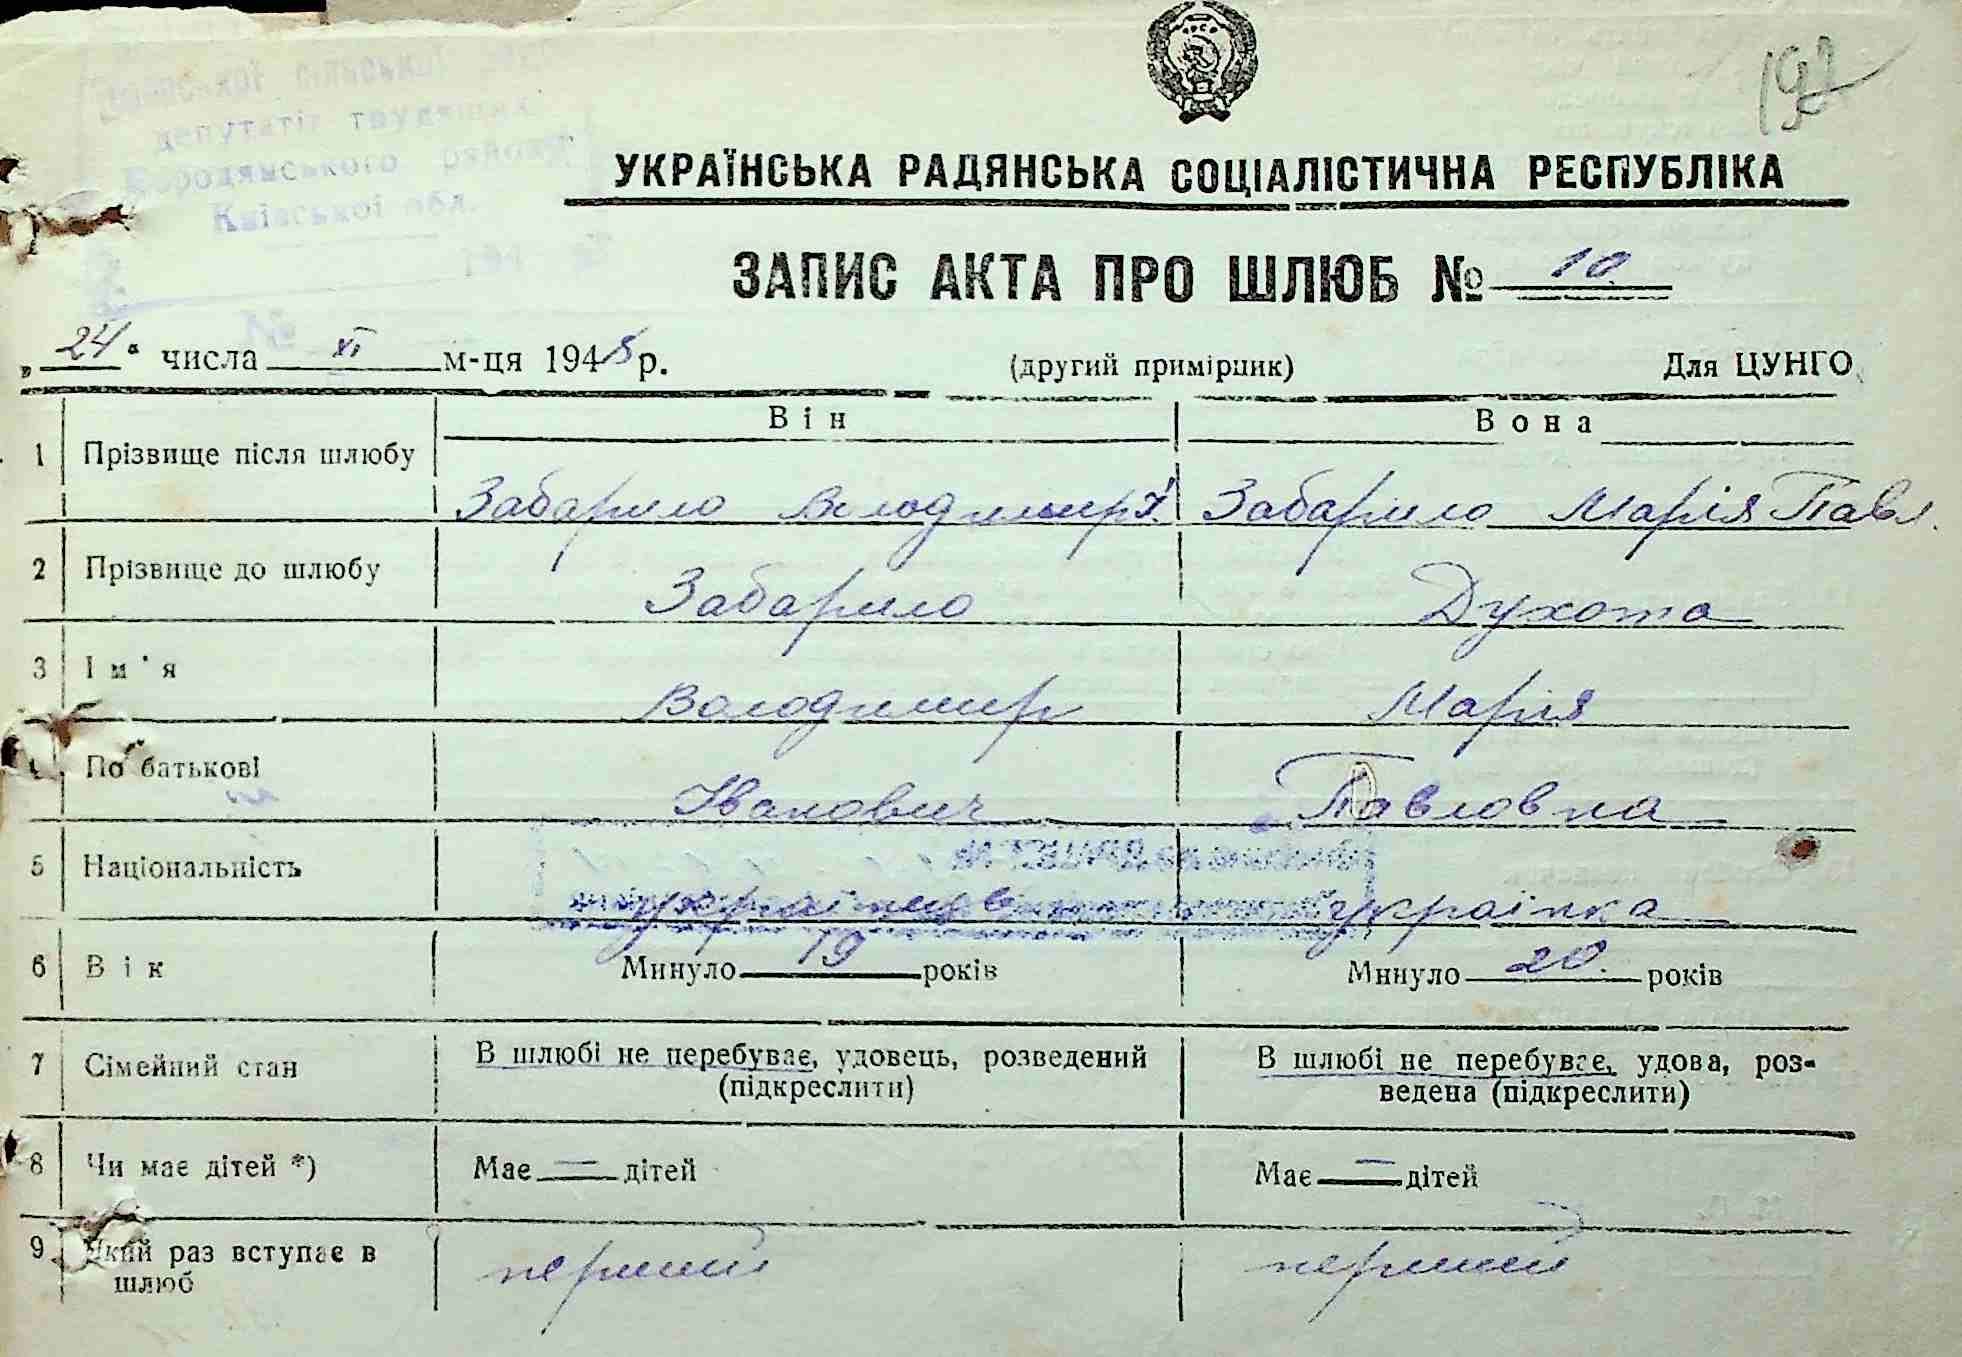 сільської
депутатів трудящих
Бородянського району
Київської обл.
194
№
192
УКРАЇНСЬКА РАДЯНСЬКА СОЦІАЛІСТИЧНА РЕСПУБЛІКА
ЗАПИС АКТА ПРО ШЛЮБ № 10.
„24“ числа XI м-ця 1948 р. (другий примірник) Для ЦУНГО
Він Вона
1 Прізвище після шлюбу Забарило Володимир І. Забарило Марія Павл.
2 Прізвище до шлюбу Забарило Духота
3 Ім'я Володимир Марія
По батькові Іванович Павловна
5 Національність українець українка
6 Вік Минуло 19 років Минуло 20. років
7 Сімейний стан В шлюбі не перебуває, удовець, розведений В шлюбі не перебуває, удова, роз-
(підкреслити) ведена (підкреслити)
8 Чи має дітей *) Має — дітей Має — дітей
9 Який раз вступає в перший перший
шлюб